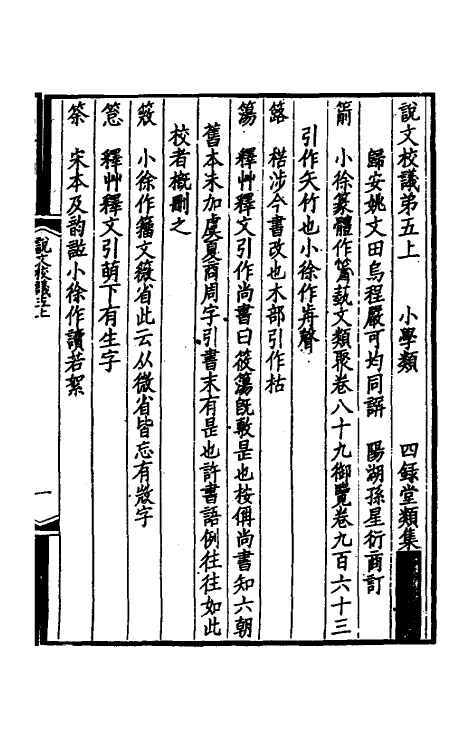 說文校議第五上　小學類　四錄堂類集
歸安姚文田烏程嚴可均同譔　陽湖孫星衍商訂
箭　小徐篆體作𥳑藝文類聚卷八十九御覽卷九百六十三
引作矢竹也小徐作歬聲
簬　楛涉今書改也木部引作枯
簜　釋艸釋文引作尚書曰筱簜旣敷是也桉偁尚書知六朝
舊本未加虞夏商周字引書末有是也許書語例往往如此
校者槪刪之
䉠　小徐作籒文䉠省此云从微省皆忘有𢼸字
筤　釋艸釋文引萌下有生字
筡　宋本及韵譜小徐作讀若絮
說文校議五上
一